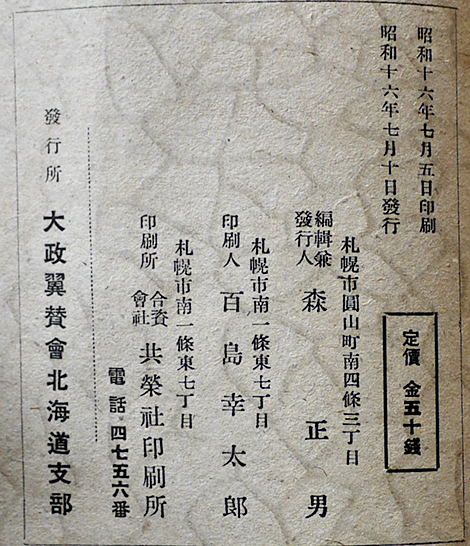 昭和十六年七月五日印刷
昭和十六年七月十日發行
定價 金五十錢
札幌市圓山町南四條三丁目
編輯兼發行人 森正男
札幌市南一條東七丁目
印刷人 百島幸太郎
札幌市南一條東七丁目
印刷所 合資會社 共榮社印刷所
電話 四七五六番
發行所 大政翼賛會北海道支部